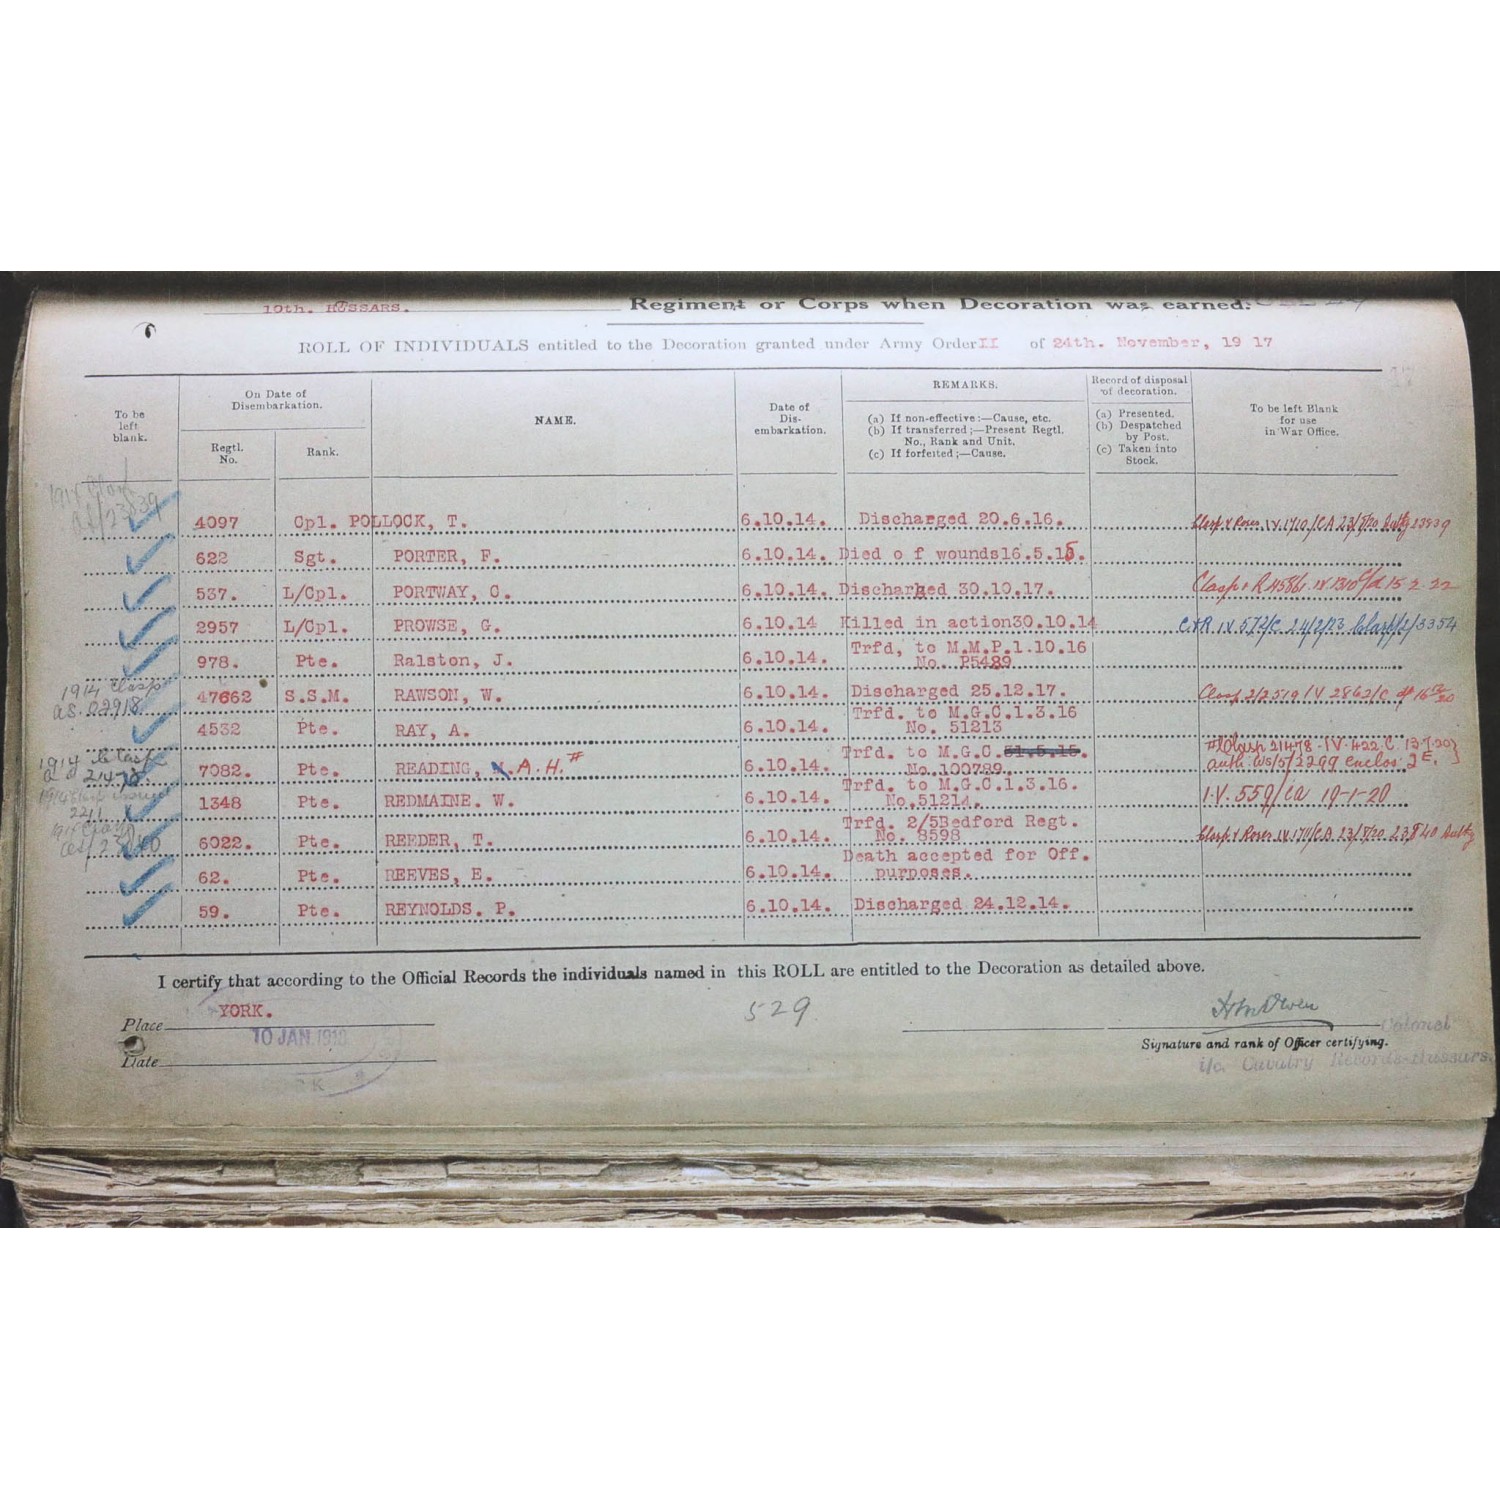 10th. HUSSARS. Regiment or Corps when Decoration was earned.
ROLL OF INDIVIDUALS entitled to the Decoration granted under Army Order II of 24th. November, 19 17
To be left blank.
On Date of Disembarkation.
Regtl. No.
Rank.
NAME.
Date of Dis- embarkation.
REMARKS.
(a) If non-effective:—Cause, etc.
(b) If transferred;—Present Regtl. No., Rank and Unit.
(c) If forfeited;—Cause.
Record of disposal of decoration.
(a) Presented.
(b) Despatched by Post.
(c) Taken into Stock.
To be left Blank for use in War Office.
1914 Clasp
4097 Cpl. POLLOCK, T. 6.10.14. Discharged 20.6.16. Clasp & Roses IV.1710/CA 23/8/20 Authy 23839
622 Sgt. PORTER, F. 6.10.14. Died o f wounds16.5.15.
537. L/Cpl. PORTWAY, C. 6.10.14. Discharged 30.10.17. Clasp & R 15-2-22
2957 L/Cpl. PROWSE, G. 6.10.14 Killed in action30.10.14 C&R IV 572/C 24/2/23 Clasp/2/3354
978. Pte. Ralston, J. 6.10.14. Trfd, to M.M.P.1.10.16
No. P5489
1914 Clasp
47662 S.S.M. RAWSON, W. 6.10.14. Discharged 25.12.17. Clasp 2/2519 IV 2862/C
4532 Pte. RAY, A. 6.10.14. Trfd. to M.G.C.1.3.16
No. 51213
1914 Clasp
21478
7082. Pte. READING, A.H.# 6.10.14. Trfd. to M.G.C.31.5.15.
No.100789. #Clasp 21478-IV.422.C 13.7.20}
auth. WS/5/2299 enclos. 2E.
2211
1348 Pte. REDMAINE. W. 6.10.14. Trfd. to M.G.C.1.3.16.
No.51214. I.V. 559/CA 19-1-20
6022. Pte. REEDER, T. 6.10.14. Trfd. 2/5Bedford Regt.
No. 8598 Clasp & Roses IV.1711/CA 23/8/20 23840 Authy
62. Pte. REEVES, E. 6.10.14. Death accepted for Off.
purposes.
59. Pte. REYNOLDS. P. 6.10.14. Discharged 24.12.14.
I certify that according to the Official Records the individuals named in this ROLL are entitled to the Decoration as detailed above.
Place YORK.
529
10 JAN. 1918
Date
Colonel
Signature and rank of Officer certifying.
i/c. Cavalry Records-Hussars.